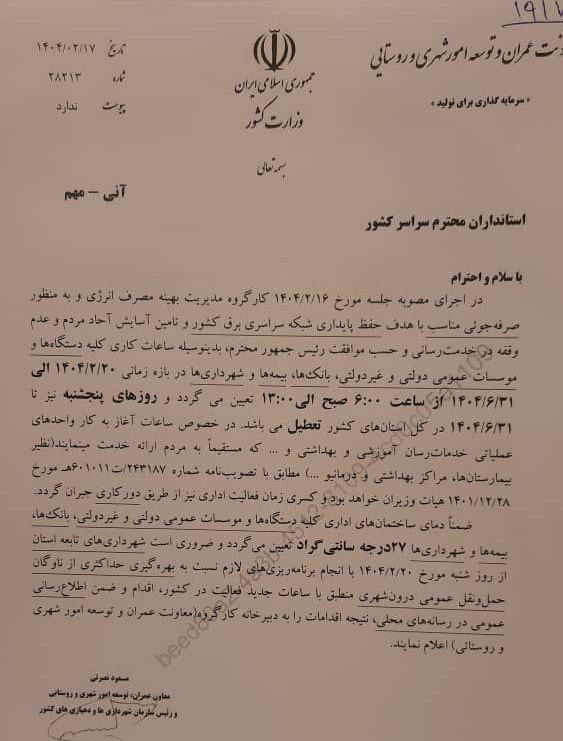 ۱۹/۲
ونت عمران و توسعه امور شهری و روستایی
« سرمایه گذاری برای تولید »
جمهوری اسلامی ایران
وزارت کشور
تاریخ ۱۴۰۴/۰۲/۱۷
شماره ۲۸۲۱۳
پیوست ندارد
بسمه تعالی
آنی – مهم
استانداران محترم سراسر کشور
با سلام و احترام
در اجرای مصوبه جلسه مورخ ۱۴۰۴/۲/۱۶ کارگروه مدیریت بهینه مصرف انرژی و به منظور
صرفه‌جوئی مناسب با هدف حفظ پایداری شبکه سراسری برق کشور و تامین آسایش آحاد مردم و عدم
وقفه در خدمت‌رسانی و حسب موافقت رئیس جمهور محترم، بدینوسیله ساعات کاری کلیه دستگاه‌ها و
موسسات عمومی دولتی و غیردولتی، بانک‌ها، بیمه‌ها و شهرداری‌ها در بازه زمانی ۱۴۰۴/۲/۲۰ الی
۱۴۰۴/۶/۳۱ از ساعت ۶:۰۰ صبح الی ۱۳:۰۰ تعیین می گردد و روزهای پنجشنبه نیز تا
۱۴۰۴/۶/۳۱ در کل استان‌های کشور تعطیل می باشد. در خصوص ساعات آغاز به کار واحدهای
عملیاتی خدمات‌رسان آموزشی و بهداشتی و ... که مستقیماً به مردم ارائه خدمت مینمایند(نظیر
بیمارستان‌ها، مراکز بهداشتی و درمانیو ...) مطابق با تصویب‌نامه شماره ۲۴۳۱۸۷/ت۶۰۱۰۱۱هـ مورخ
۱۴۰۱/۱۲/۲۸ هیات وزیران خواهد بود و کسری زمان فعالیت اداری نیز از طریق دورکاری جبران گردد.
ضمناً دمای ساختمان‌های اداری کلیه دستگاه‌ها و موسسات عمومی دولتی و غیردولتی، بانک‌ها،
بیمه‌ها و شهرداری‌ها ۲۷درجه سانتی‌گراد تعیین می‌گردد و ضروری است شهرداری‌های تابعه استان
از روز شنبه مورخ ۱۴۰۴/۲/۲۰ با انجام برنامه‌ریزی‌های لازم نسبت به بهره‌گیری حداکثری از ناوگان
حمل‌ونقل عمومی درون‌شهری منطبق با ساعات جدید فعالیت در کشور، اقدام و ضمن اطلاع‌رسانی
عمومی در رسانه‌های محلی، نتیجه اقدامات را به دبیرخانه کارگروه(معاونت عمران و توسعه امور شهری
و روستائی) اعلام نمایند.
مسعود نصرتی
معاون عمران، توسعه امور شهری و روستایی
و رئیس سازمان شهرداری ها و دهیاری های کشور